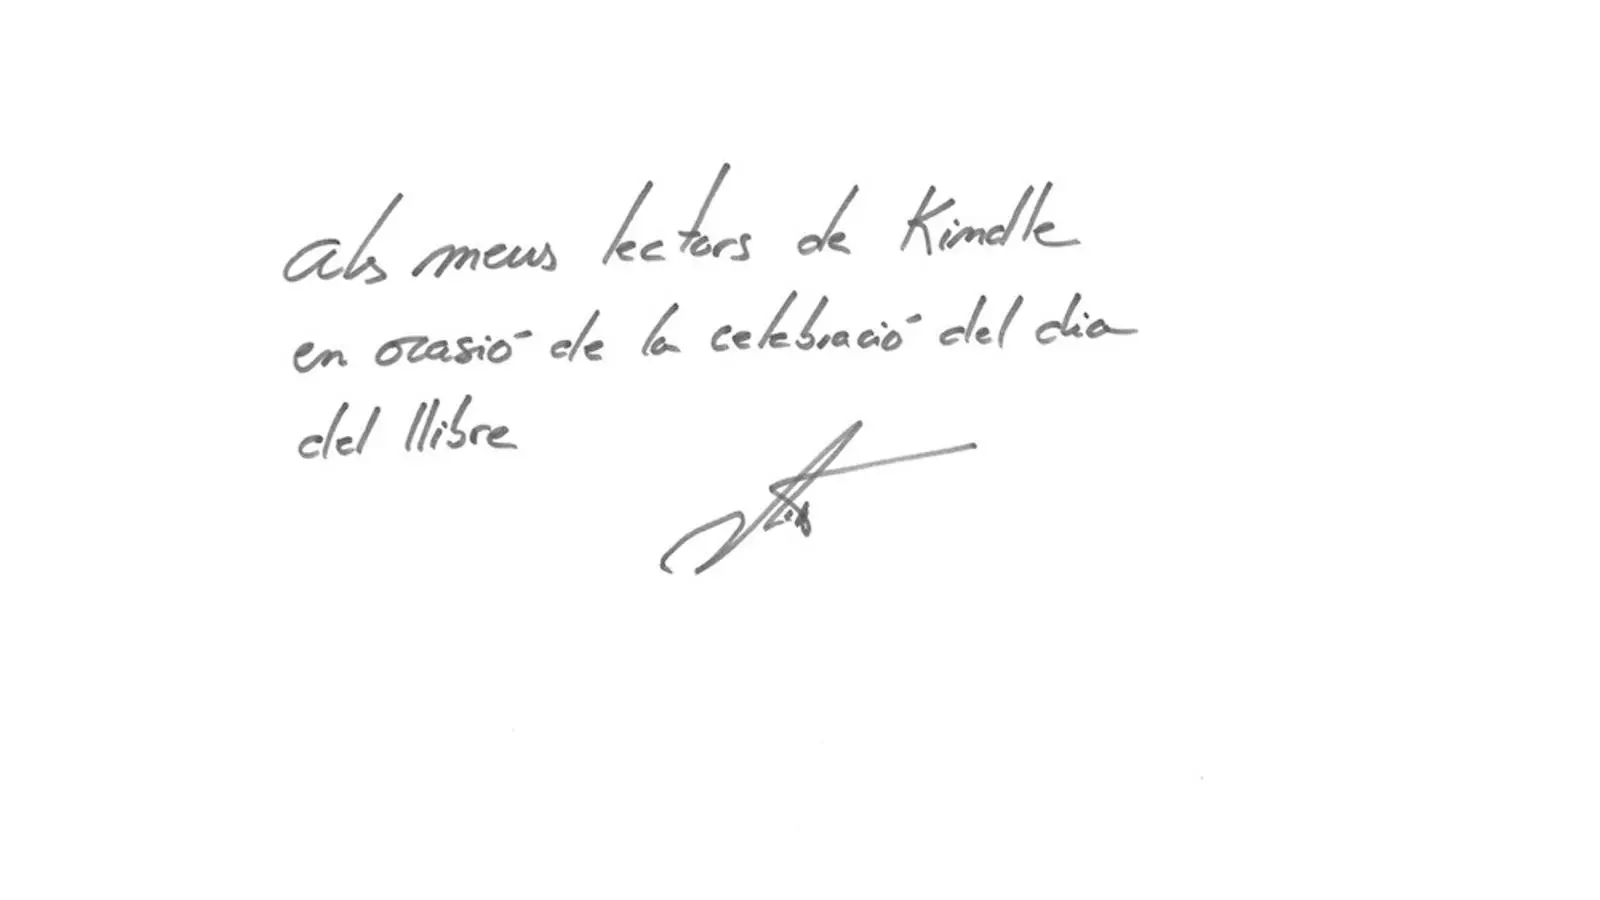 Als meus lectors de Kindle
en ocasió de la celebració del dia
del llibre